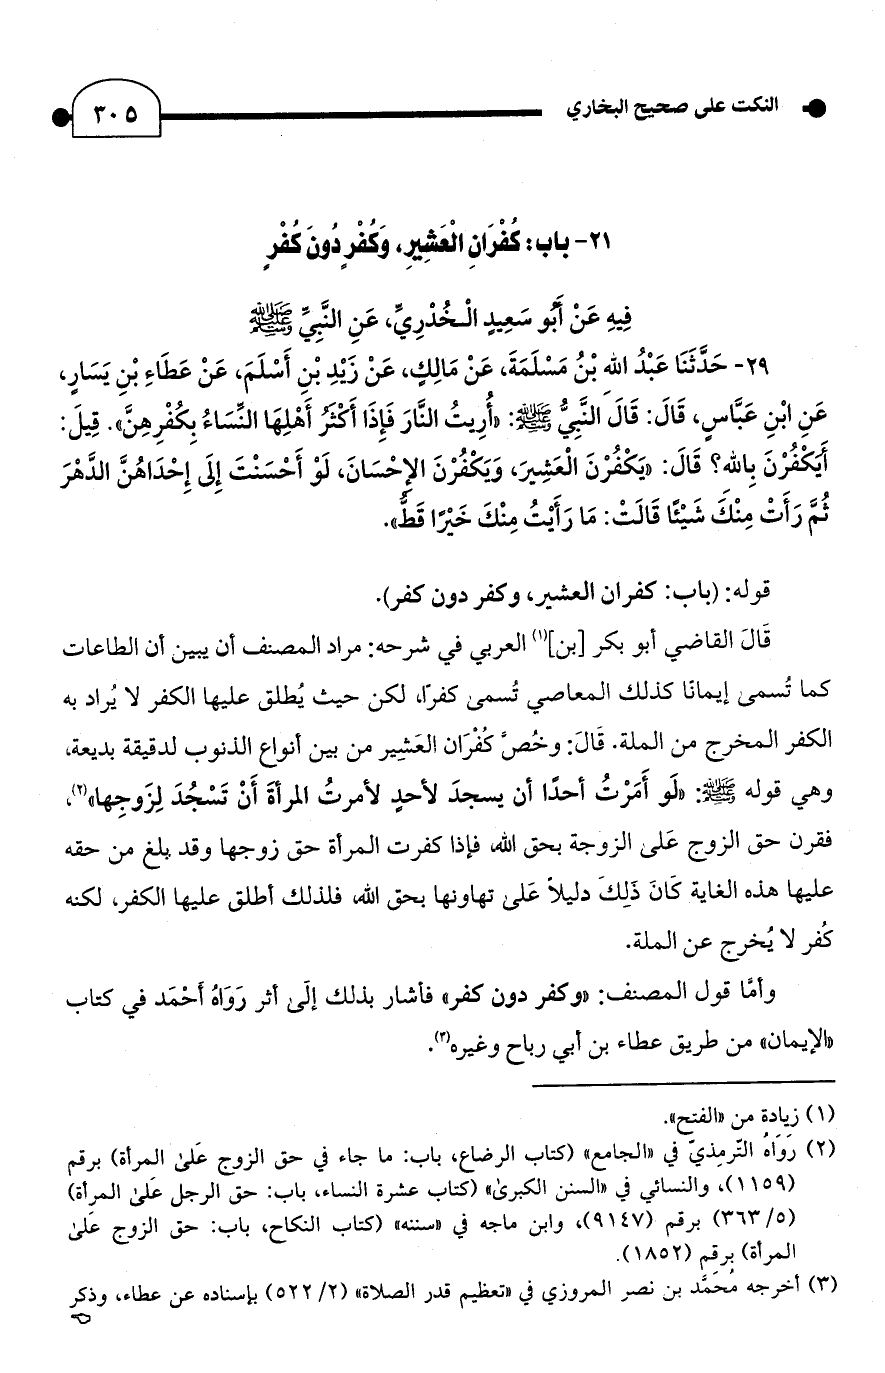 النكت على صحيح البخاري
٣٠٥
٢١- باب: كُفْرَانِ الْعَشِيرِ، وَكُفْرٍ دُونَ كُفْرٍ
فِيهِ عَنْ أَبُو سَعِيدٍ الْخُدْرِيِّ، عَنِ النَّبِيِّ ﷺ
٢٩- حَدَّثَنَا عَبْدُ اللهِ بْنُ مَسْلَمَةَ، عَنْ مَالِكٍ، عَنْ زَيْدِ بْنِ أَسْلَمَ، عَنْ عَطَاءِ بْنِ يَسَارٍ،
عَنِ ابْنِ عَبَّاسٍ، قَالَ: قَالَ النَّبِيُّ ﷺ: «أُرِيتُ النَّارَ فَإِذَا أَكْثَرُ أَهْلِهَا النِّسَاءُ بِكُفْرِهِنَّ». قِيلَ:
أَيَكْفُرْنَ بِاللهِ؟ قَالَ: «يَكْفُرْنَ الْعَشِيرَ، وَيَكْفُرْنَ الإِحْسَانَ، لَوْ أَحْسَنْتَ إِلَى إِحْدَاهُنَّ الدَّهْرَ
ثُمَّ رَأَتْ مِنْكَ شَيْئًا قَالَتْ: مَا رَأَيْتُ مِنْكَ خَيْرًا قَطُّ».
قوله: (باب: كفران العشير، وكفر دون كفر).
قَالَ القاضي أبو بكر [بن](١) العربي في شرحه: مراد المصنف أن يبين أن الطاعات
كما تُسمى إيمانًا كذلك المعاصي تُسمى كفرًا، لكن حيث يُطلق عليها الكفر لا يُراد به
الكفر المخرج من الملة. قَالَ: وخُصَّ كُفْرَان العَشِير من بين أنواع الذنوب لدقيقة بديعة،
وهي قوله ﷺ: «لَو أَمَرْتُ أحدًا أن يسجدَ لأحدٍ لأمرتُ المرأةَ أَنْ تَسْجُدَ لِزَوجِها»(٢)،
فقرن حق الزوج عَلى الزوجة بحق الله، فإذا كفرت المرأة حق زوجها وقد بلغ من حقه
عليها هذه الغاية كَانَ ذَلِكَ دليلاً عَلى تهاونها بحق الله، فلذلك أطلق عليها الكفر، لكنه
كُفر لا يُخرج عن الملة.
وأمَّا قول المصنف: «وكفر دون كفر» فأشار بذلك إلَى أثر رَوَاهُ أَحْمَد في كتاب
«الإيمان» من طريق عطاء بن أبي رباح وغيره(٣).
(١) زيادة من «الفتح».
(٢) رَوَاهُ التِّرمِذيّ في «الجامع» (كتاب الرضاع، باب: ما جاء في حق الزوج عَلىٰ المرأة) برقم
(١١٥٩)، والنسائي في «السنن الكبرىٰ» (كتاب عشرة النساء، باب: حق الرجل عَلىٰ المرأة)
(٥/ ٣٦٣) برقم (٩١٤٧)، وابن ماجه في «سننه» (كتاب النكاح، باب: حق الزوج عَلىٰ
المرأة) برقم (١٨٥٢).
(٣) أخرجه مُحَمَّد بن نصر المروزي في «تعظيم قدر الصلاة» (٢/ ٥٢٢) بإسناده عن عطاء، وذكر